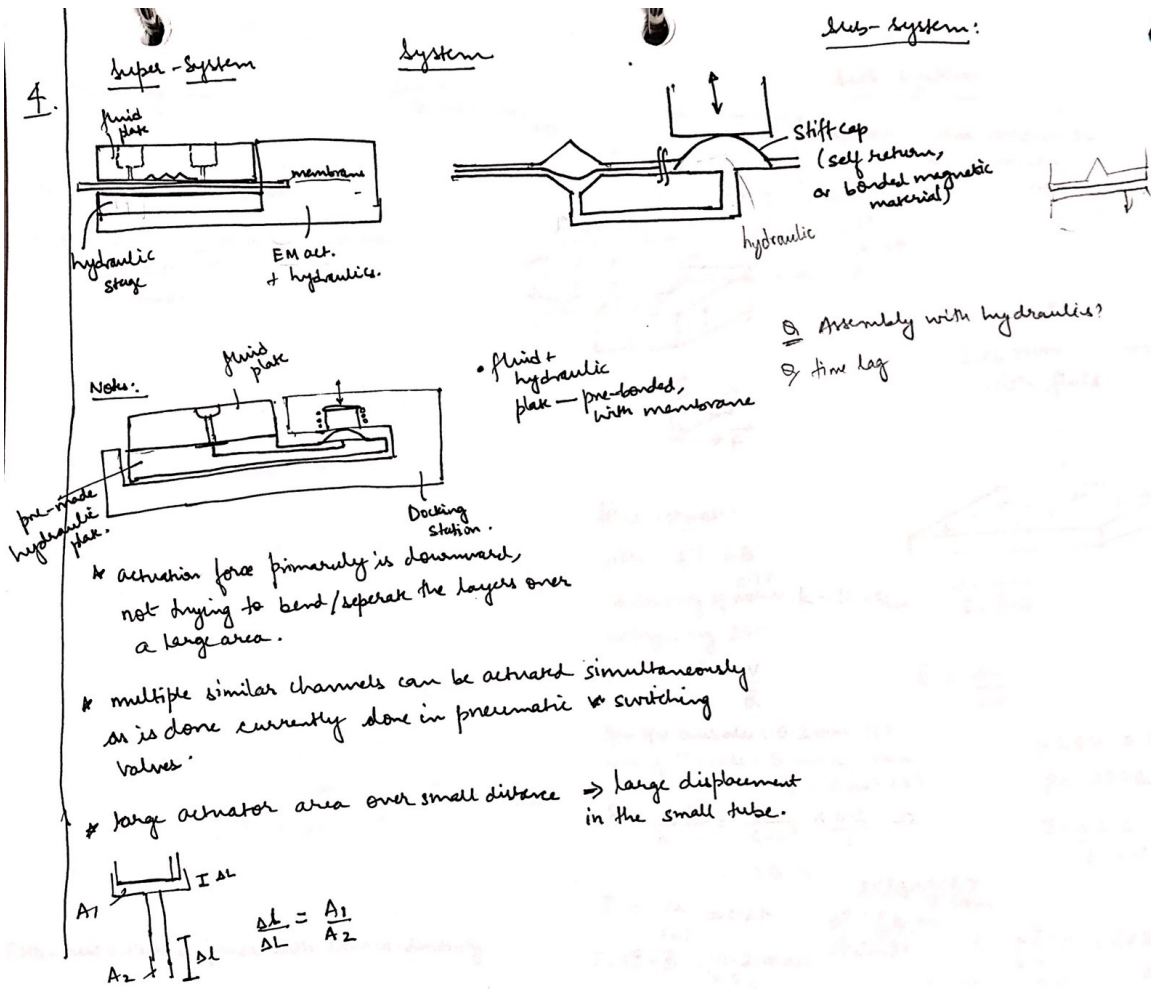 4.
Super-System
System
Sub-System:
fluid
plate
membrane
hydraulic
stage
EM act.
+ hydraulics.
Stiff cap
(self return,
or bonded magnetic
material)
hydraulic
Q Assembly with hydraulics?
Q, time lag
Notes:
fluid
plate
• fluid +
hydraulic
plate — pre-bonded,
with membrane
pre-made
hydraulic
plate.
Docking
Station.
* actuation force primarily is downward,
not trying to bend/seperate the layers over
a large area.
* multiple similar channels can be actuated simultaneously
as is done currently done in pneumatic switching
valves.
* large actuator area over small distance ⇒ large displacement
in the small tube.
A1
ΔL
Δl/ΔL = A1/A2
A2
Δl